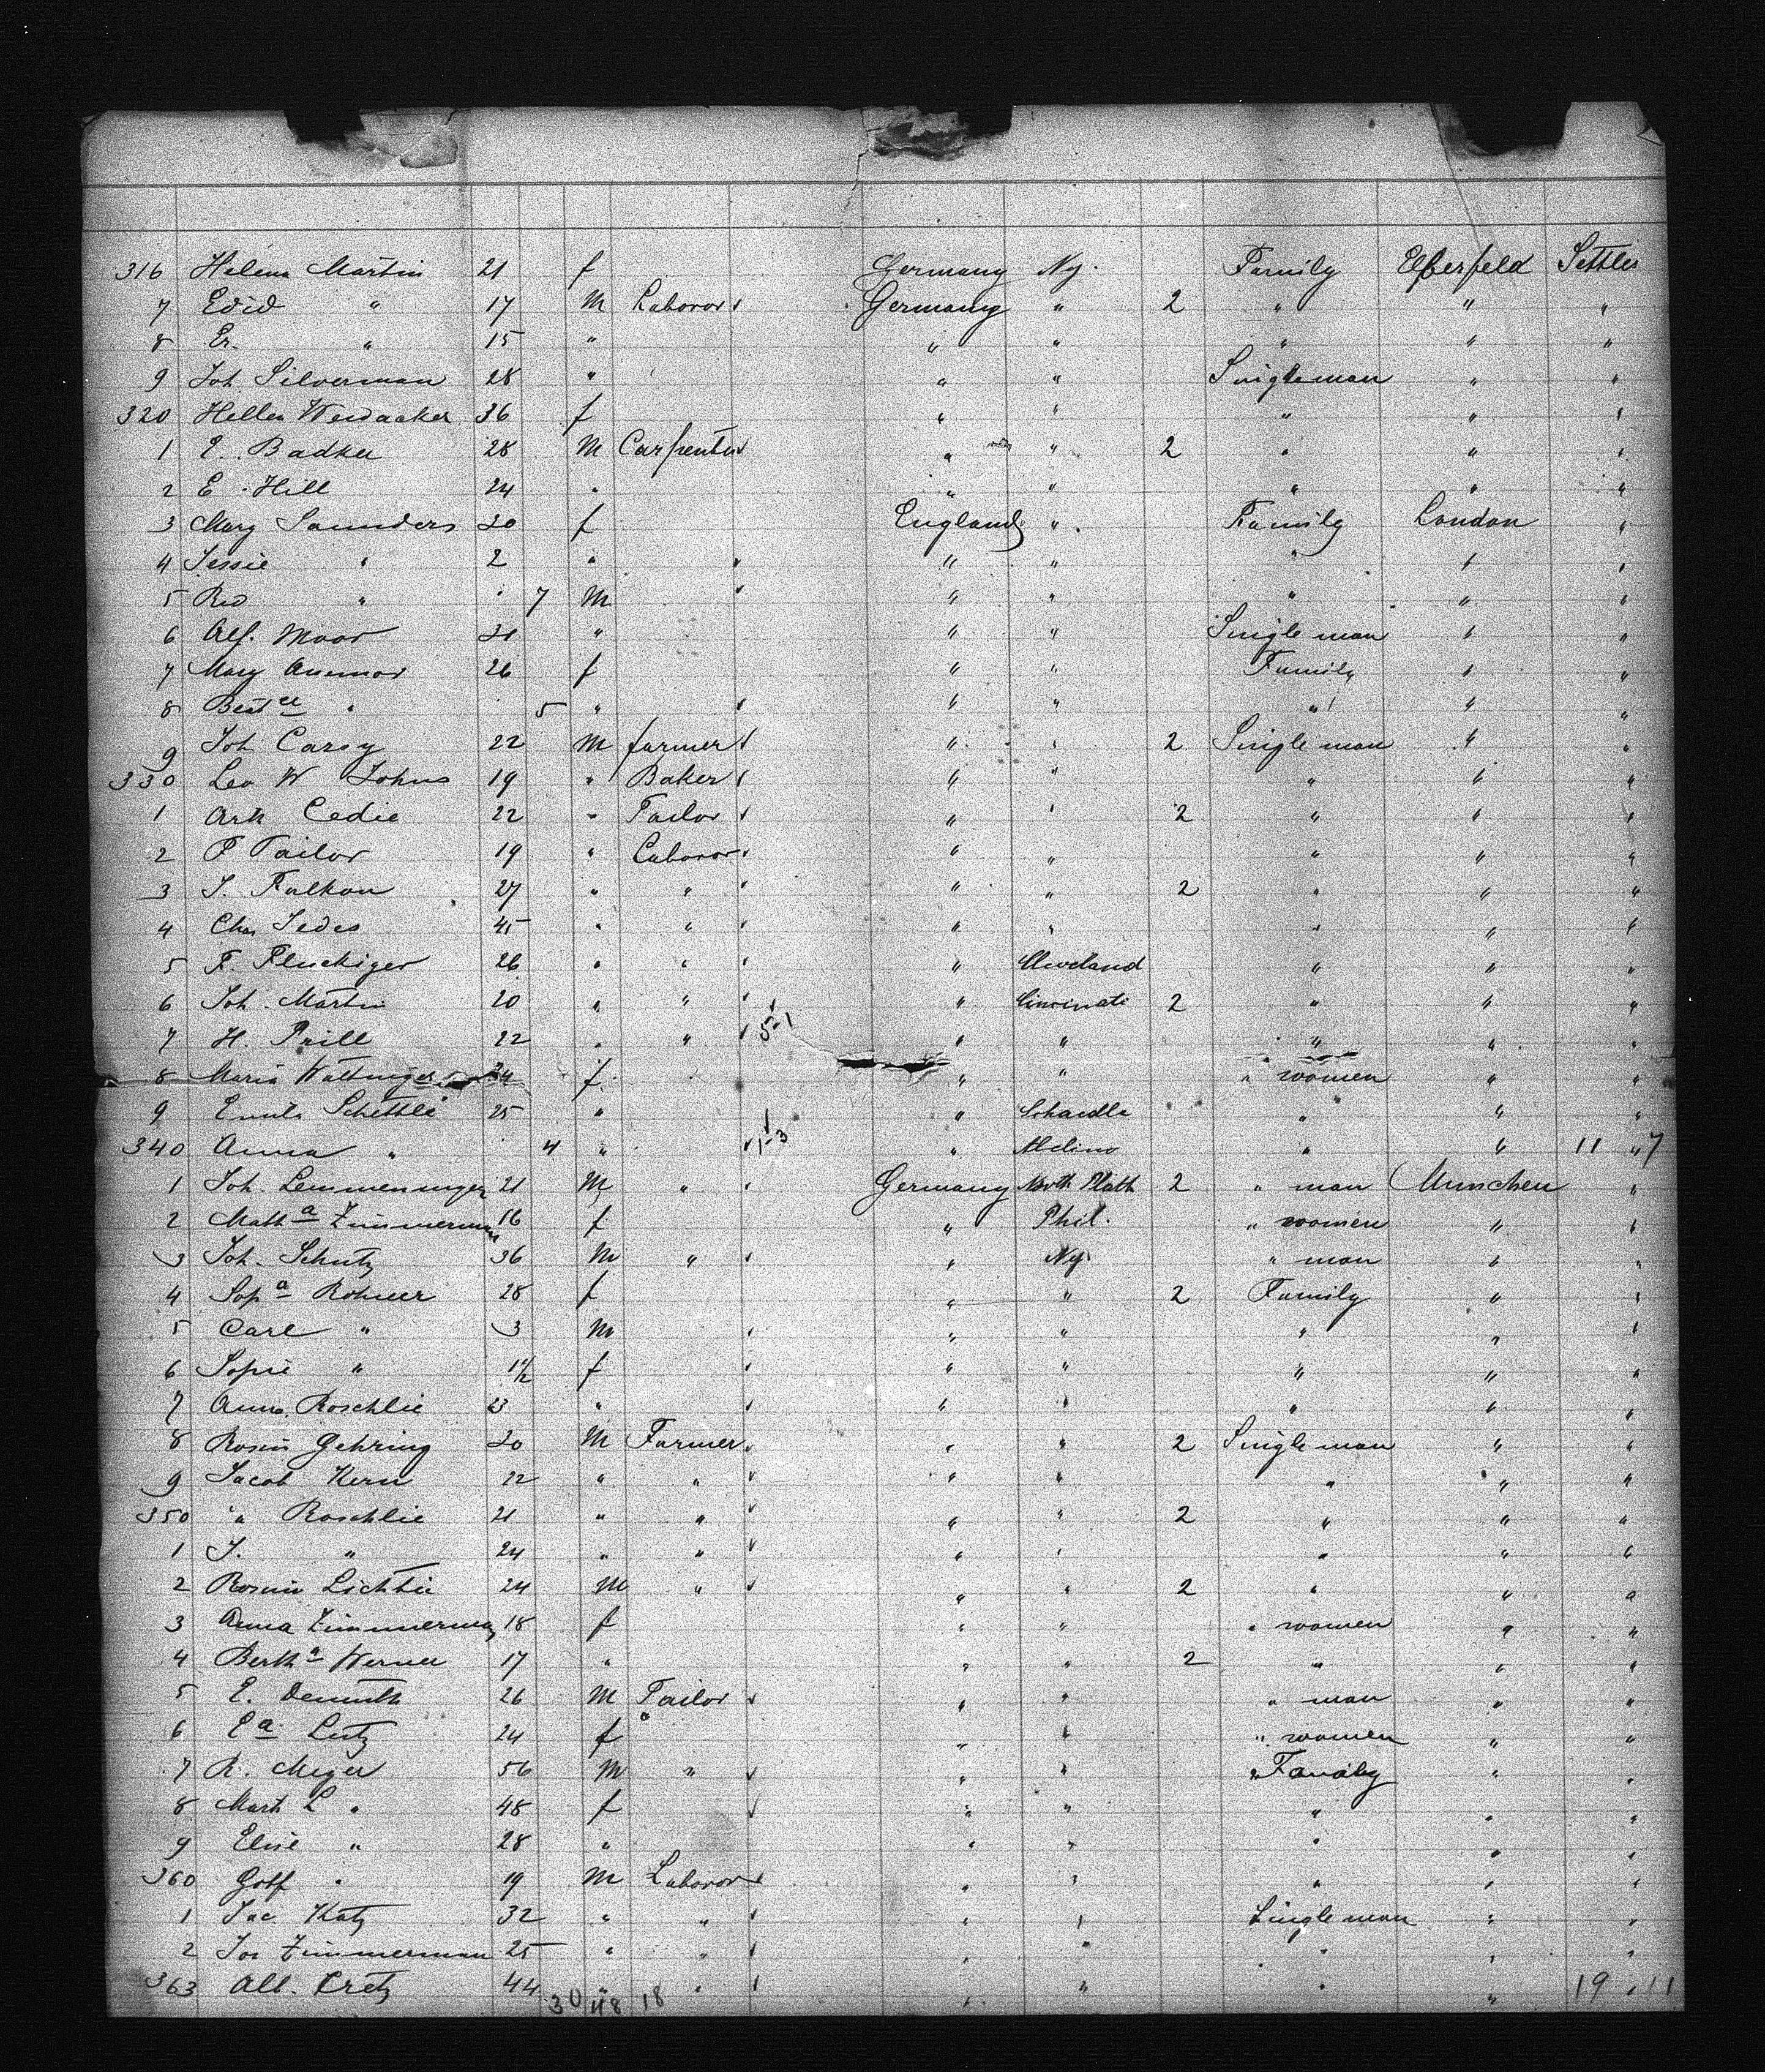 316 Helena Martin 21 f Germany Ny. Family Elberfeld Settler
7 Edid " 17 M Laboror Germany " 2 " " "
8 Er. " 15 " " " " " "
9 Joh. Silverman 28 " " " Singleman " "
320 Hellen Weidacker 36 f " " " " "
1 E. Badker 28 M Carpenter " " 2 " " "
2 E. Hill 24 " " " " " "
3 Mary Saunders 20 f England " Family London "
4 Jessie " 2 " " " " " "
5 " " 7 M " " " " "
6 Alf. Moor " " " Single man " "
7 Mary 26 f " " Family " "
8 " 5 " " " " " "
9 Joh Carsy 22 M farmer " " 2 Single man " "
330 Leo W Johns 19 " Baker " " " " "
1 Ark Cedie 22 " Tailor " " 2 " " "
2 P Tailor 19 " Laboror " " " " "
3 J. Falkon 27 " " " " 2 " " "
4 Chs 45 " " " " " " "
5 F. Fluckiger 26 " " " Cleveland " " "
6 Joh. Martin 20 " " " Cincinati 2 " " "
7 H. Prill 22 " " 5-1 " " " " "
8 Maria 24 f " " " women " "
9 Schettle 25 " " " " "
340 Anna " 4 " 1-3 " " " 11 " 7
1 Joh. Lemmeninger 21 M " Germany North Platt 2 " man Munchen "
2 Math a Zimmerman 16 f " Phil. " women " "
3 Joh. Schutz 36 M " " Ny. " man " "
4 Sop a Rohner 28 f " " 2 Family " "
5 Carl " 3 M " " " " "
6 Sopie " 1½ f " " " " "
7 Anna Roschlie 23 " " " " " "
8 Rosin Gehring 20 M Farmer " " 2 Single man " "
9 Jacob Kern 22 " " " " " " "
350 " Roschlie 21 " " " " 2 " " "
1 J. " 24 " " " " " " "
2 Rosin Lichtie 24 M " " " 2 " " "
3 Anna Zimmerman 18 f " " " women " "
4 Berth a Werner 17 " " " 2 " " "
5 E. Demuth 26 M Tailor " " " man " "
6 E a. Lutz 24 f " " " women " "
7 R. Meyer 56 M " " " " Family " "
8 Mart L " 48 f " " " " "
9 Elise " 28 " " " " " "
360 Gotf " 19 M Laboror " " " " "
1 Jac Katz 32 " " " " Single man " "
2 Jos Zimmerman 25 " " " " " " "
363 Alb. Kretz 44 " " " " " " 19 " 11
30 48 18